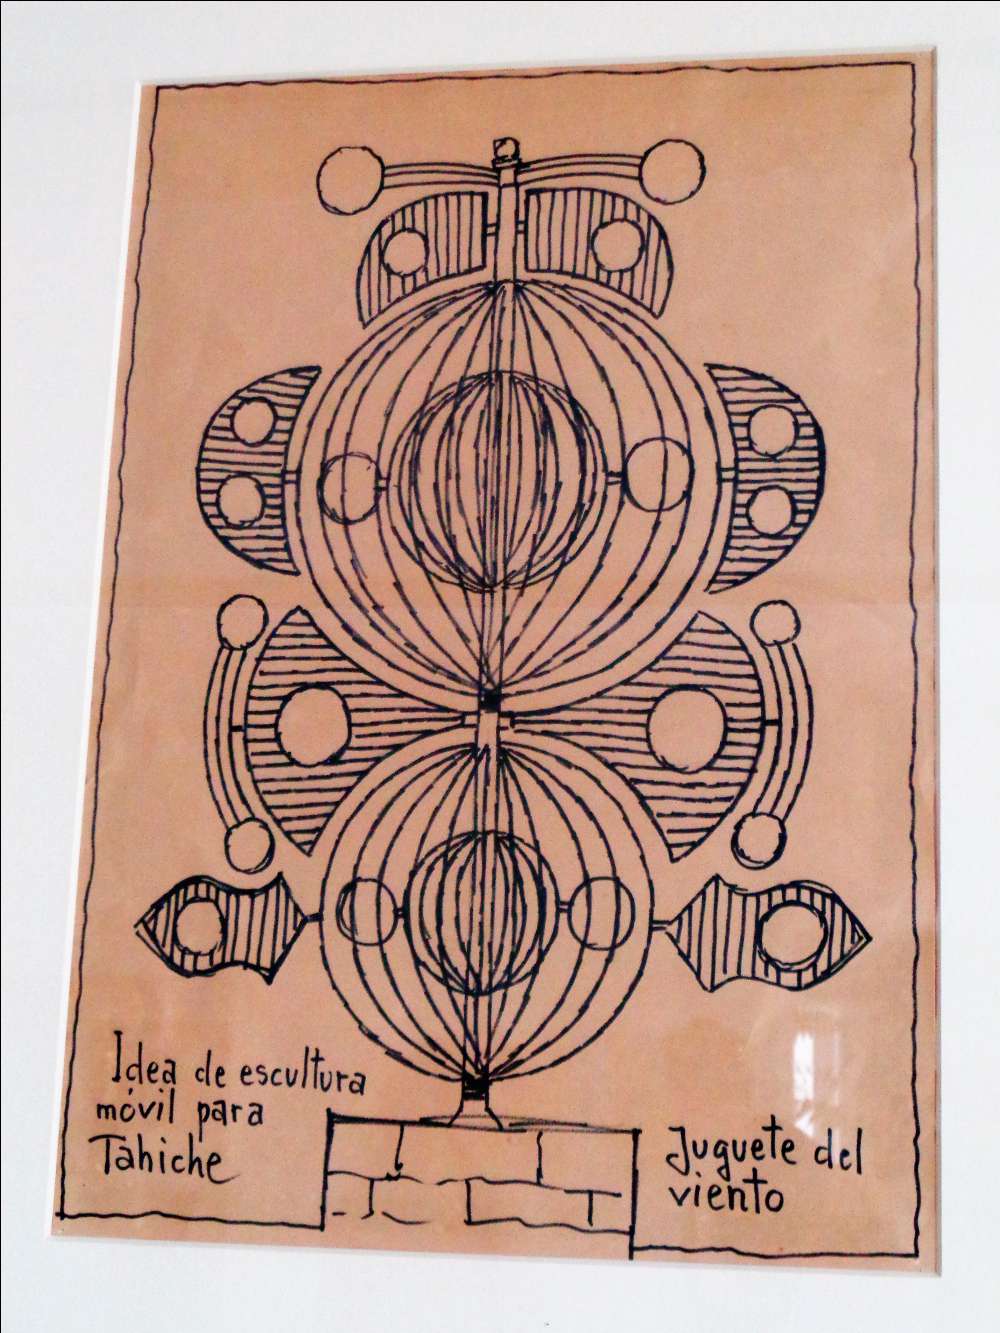 Idea de escultura
móvil para
Tahiche
Juguete del
viento